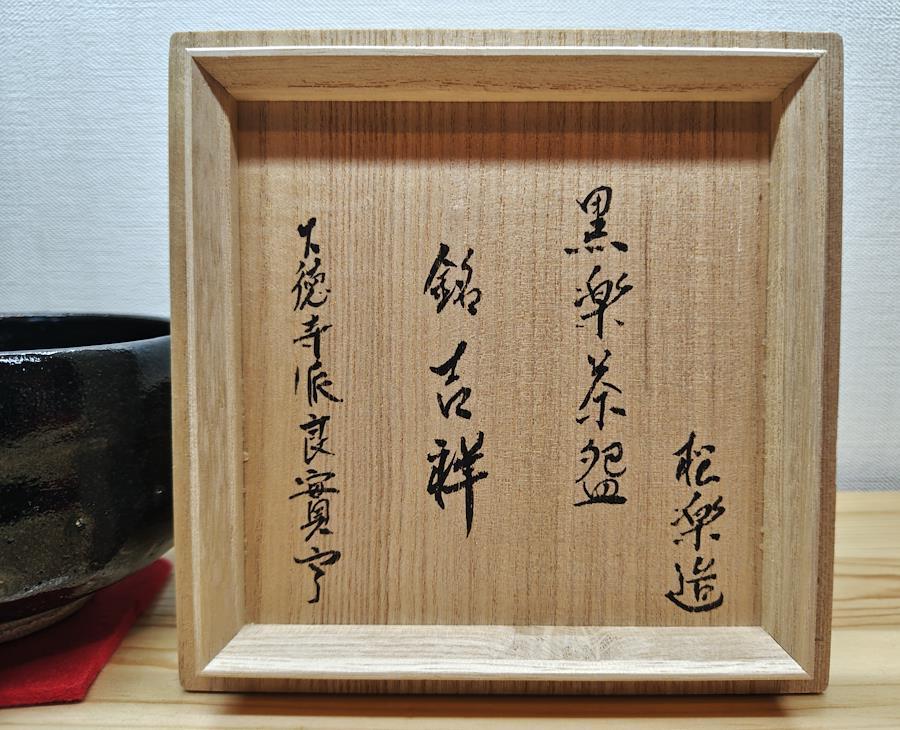 松楽造
黒楽茶盌
銘 吉祥
大徳寺派良實宀丁